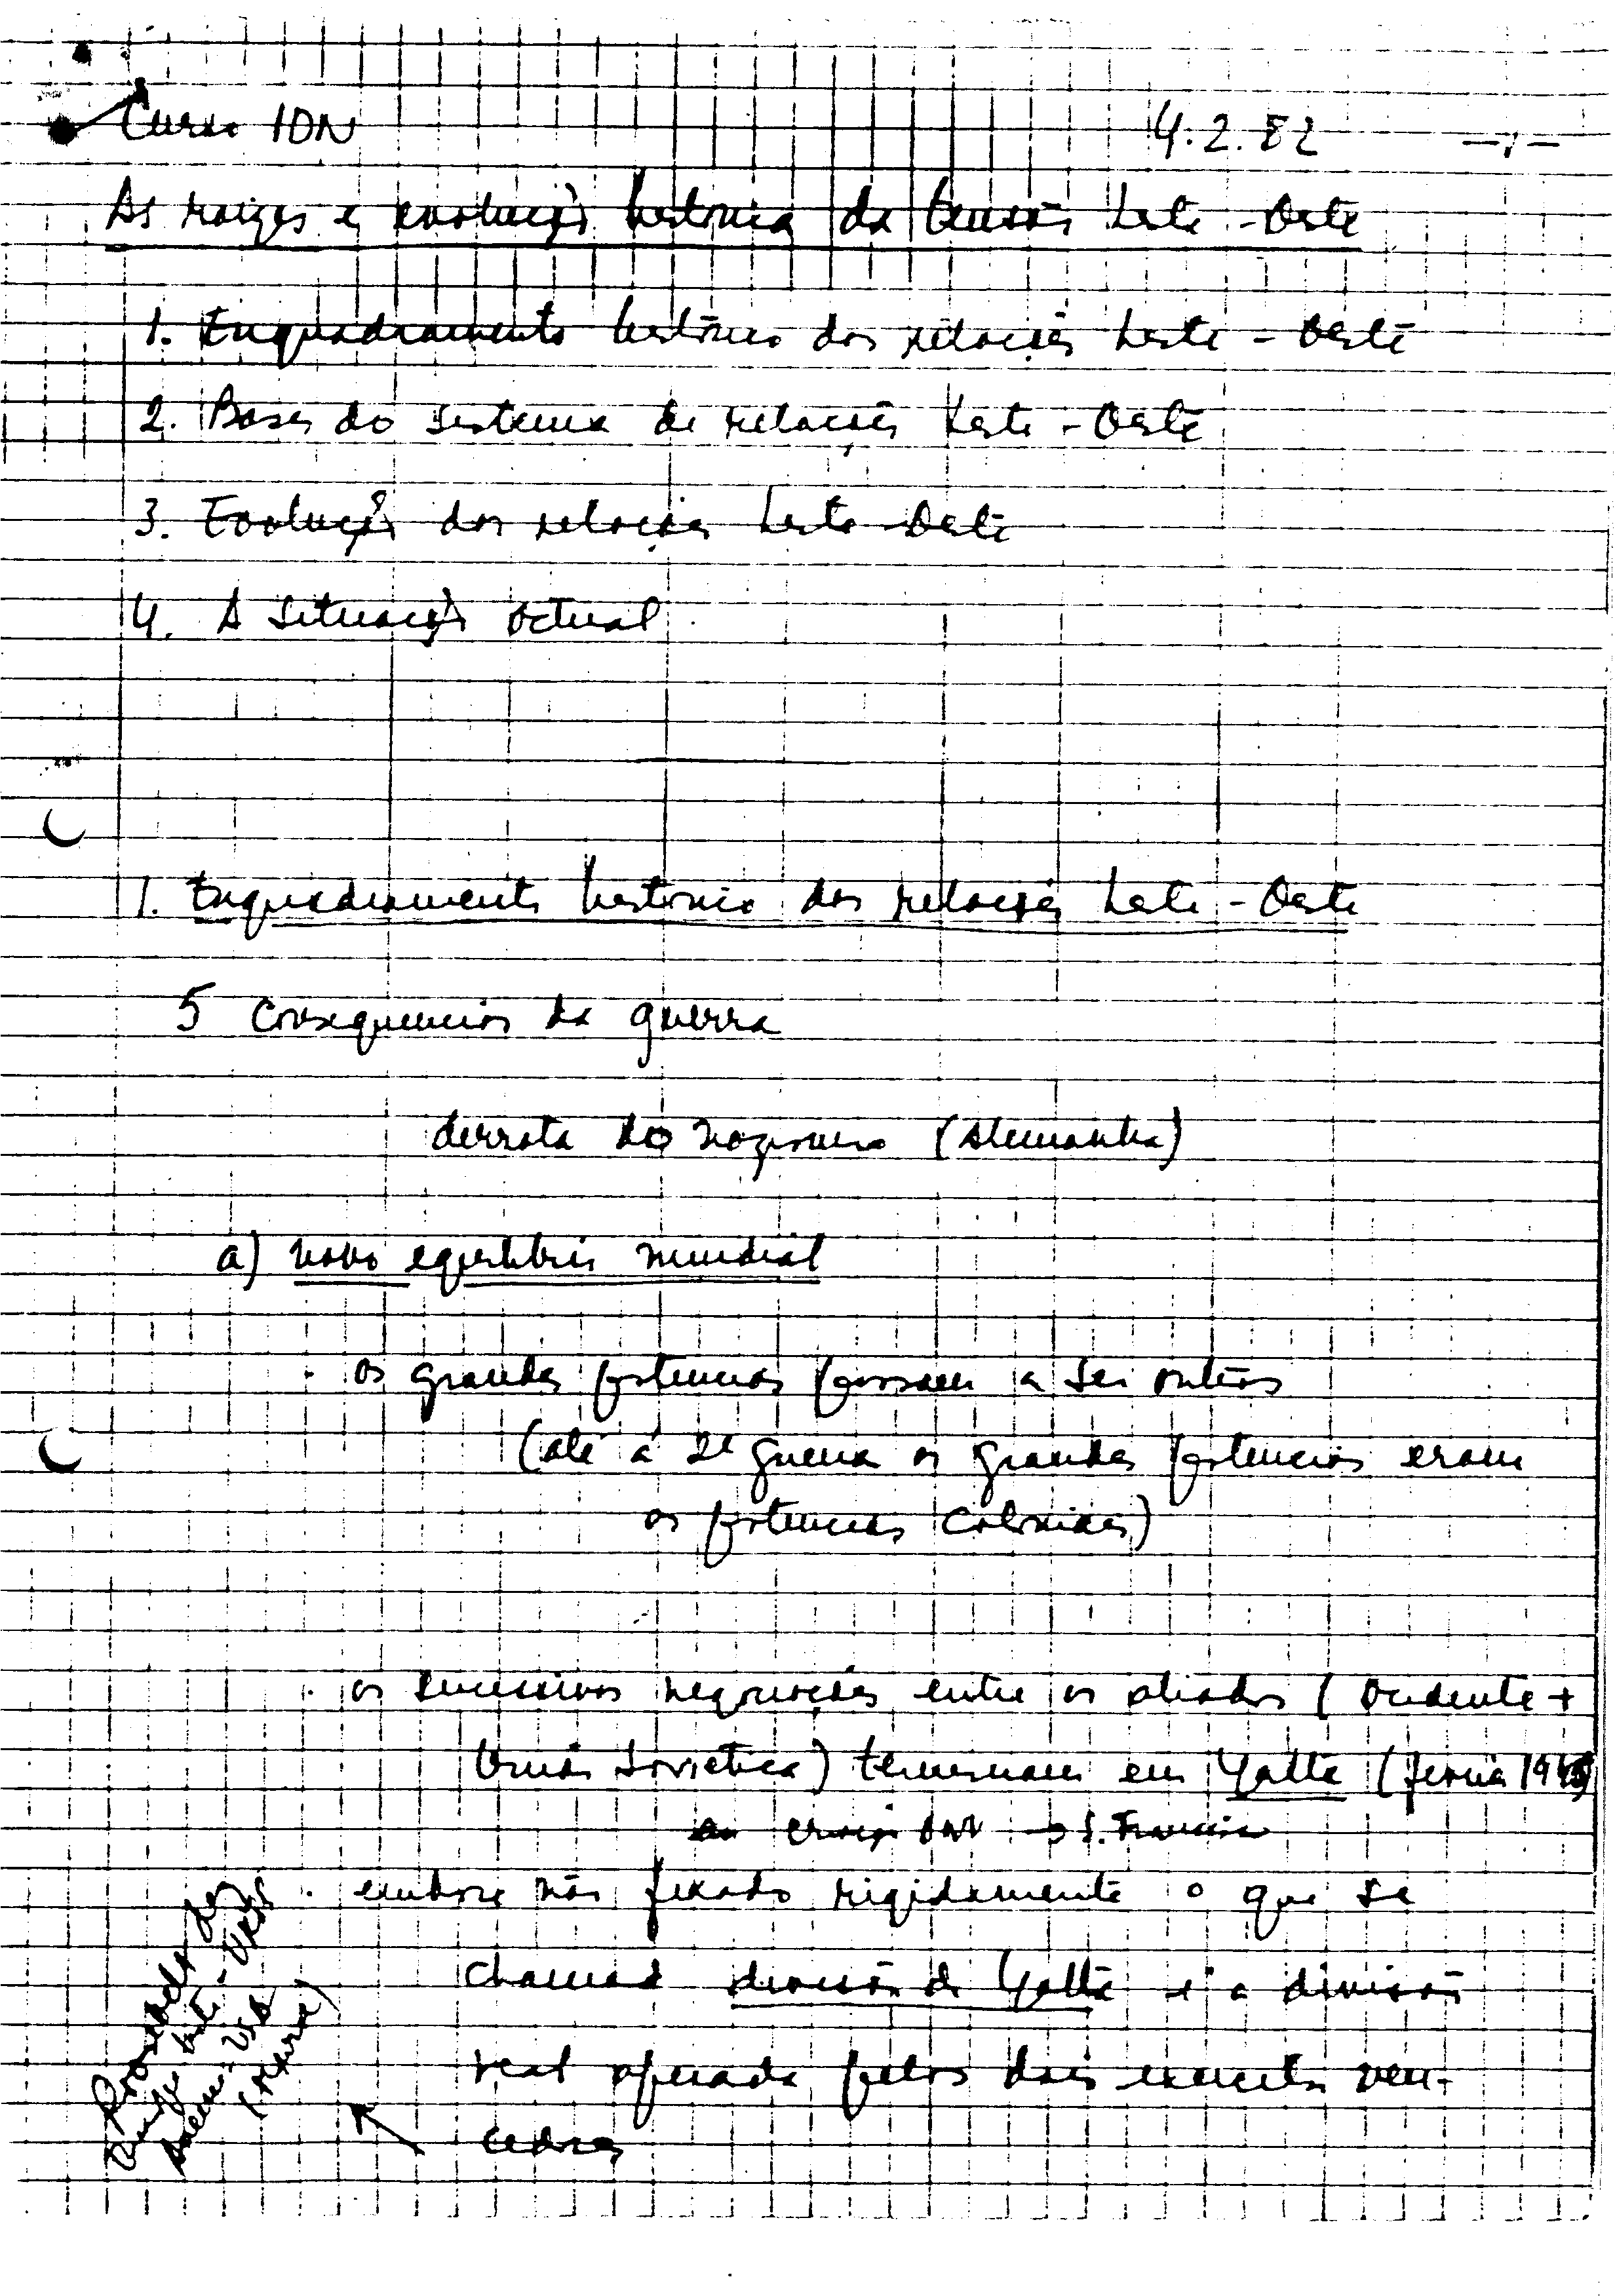 Curso IDN 4.2.82 -1-
As raizes e evolução historica da tensão Leste-Oeste
1. Enquadramento histórico das relações Leste-Oeste
2. Bases do sistema de relações Leste-Oeste
3. Evolução das relações Leste-Oeste
4. A situação actual
1. Enquadramento histórico das relações Leste-Oeste
5 consequencias da guerra
derrota do nazismo (Alemanha)
a) novo equilibrio mundial
. as grandes potencias passam a ser outras
(até à 2ª guerra as grandes potencias eram
as potencias coloniais)
. as sucessivas negociações entre os aliados (Ocidente +
União Sovietica) terminam em Yalta (1945)
criação ONU → S. Francisco
. embora não fixado rigidamente o que se
chamará divisão de Yalta é a divisão
real operada pelos dois exercitos ven-
cedores